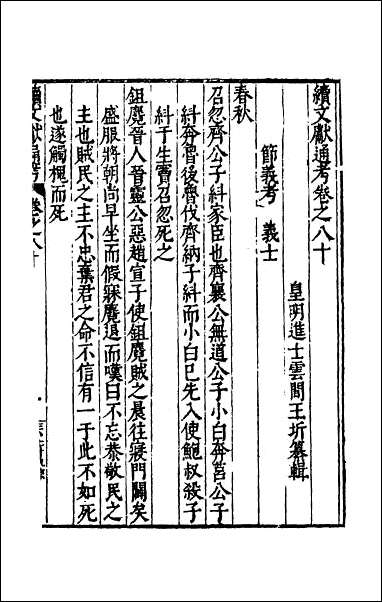 續文獻通考卷之八十
皇明進士雲間王圻纂輯
節義考 義士
春秋
召忽齊公子糾家臣也齊襄公無道公子小白奔莒公子
糾奔魯後魯伐齊納子糾而小白已先入使鮑叔殺子
糾于生竇召忽死之
鉏麑晉人晉靈公惡趙宣子使鉏麑賊之晨往寢門闢矣
盛服將朝尚早坐而假寐麑退而嘆曰不忘恭敬民之
主也賊民之主不忠棄君之命不信有一于此不如死
也遂觸槐而死
續文獻通考 卷之八十